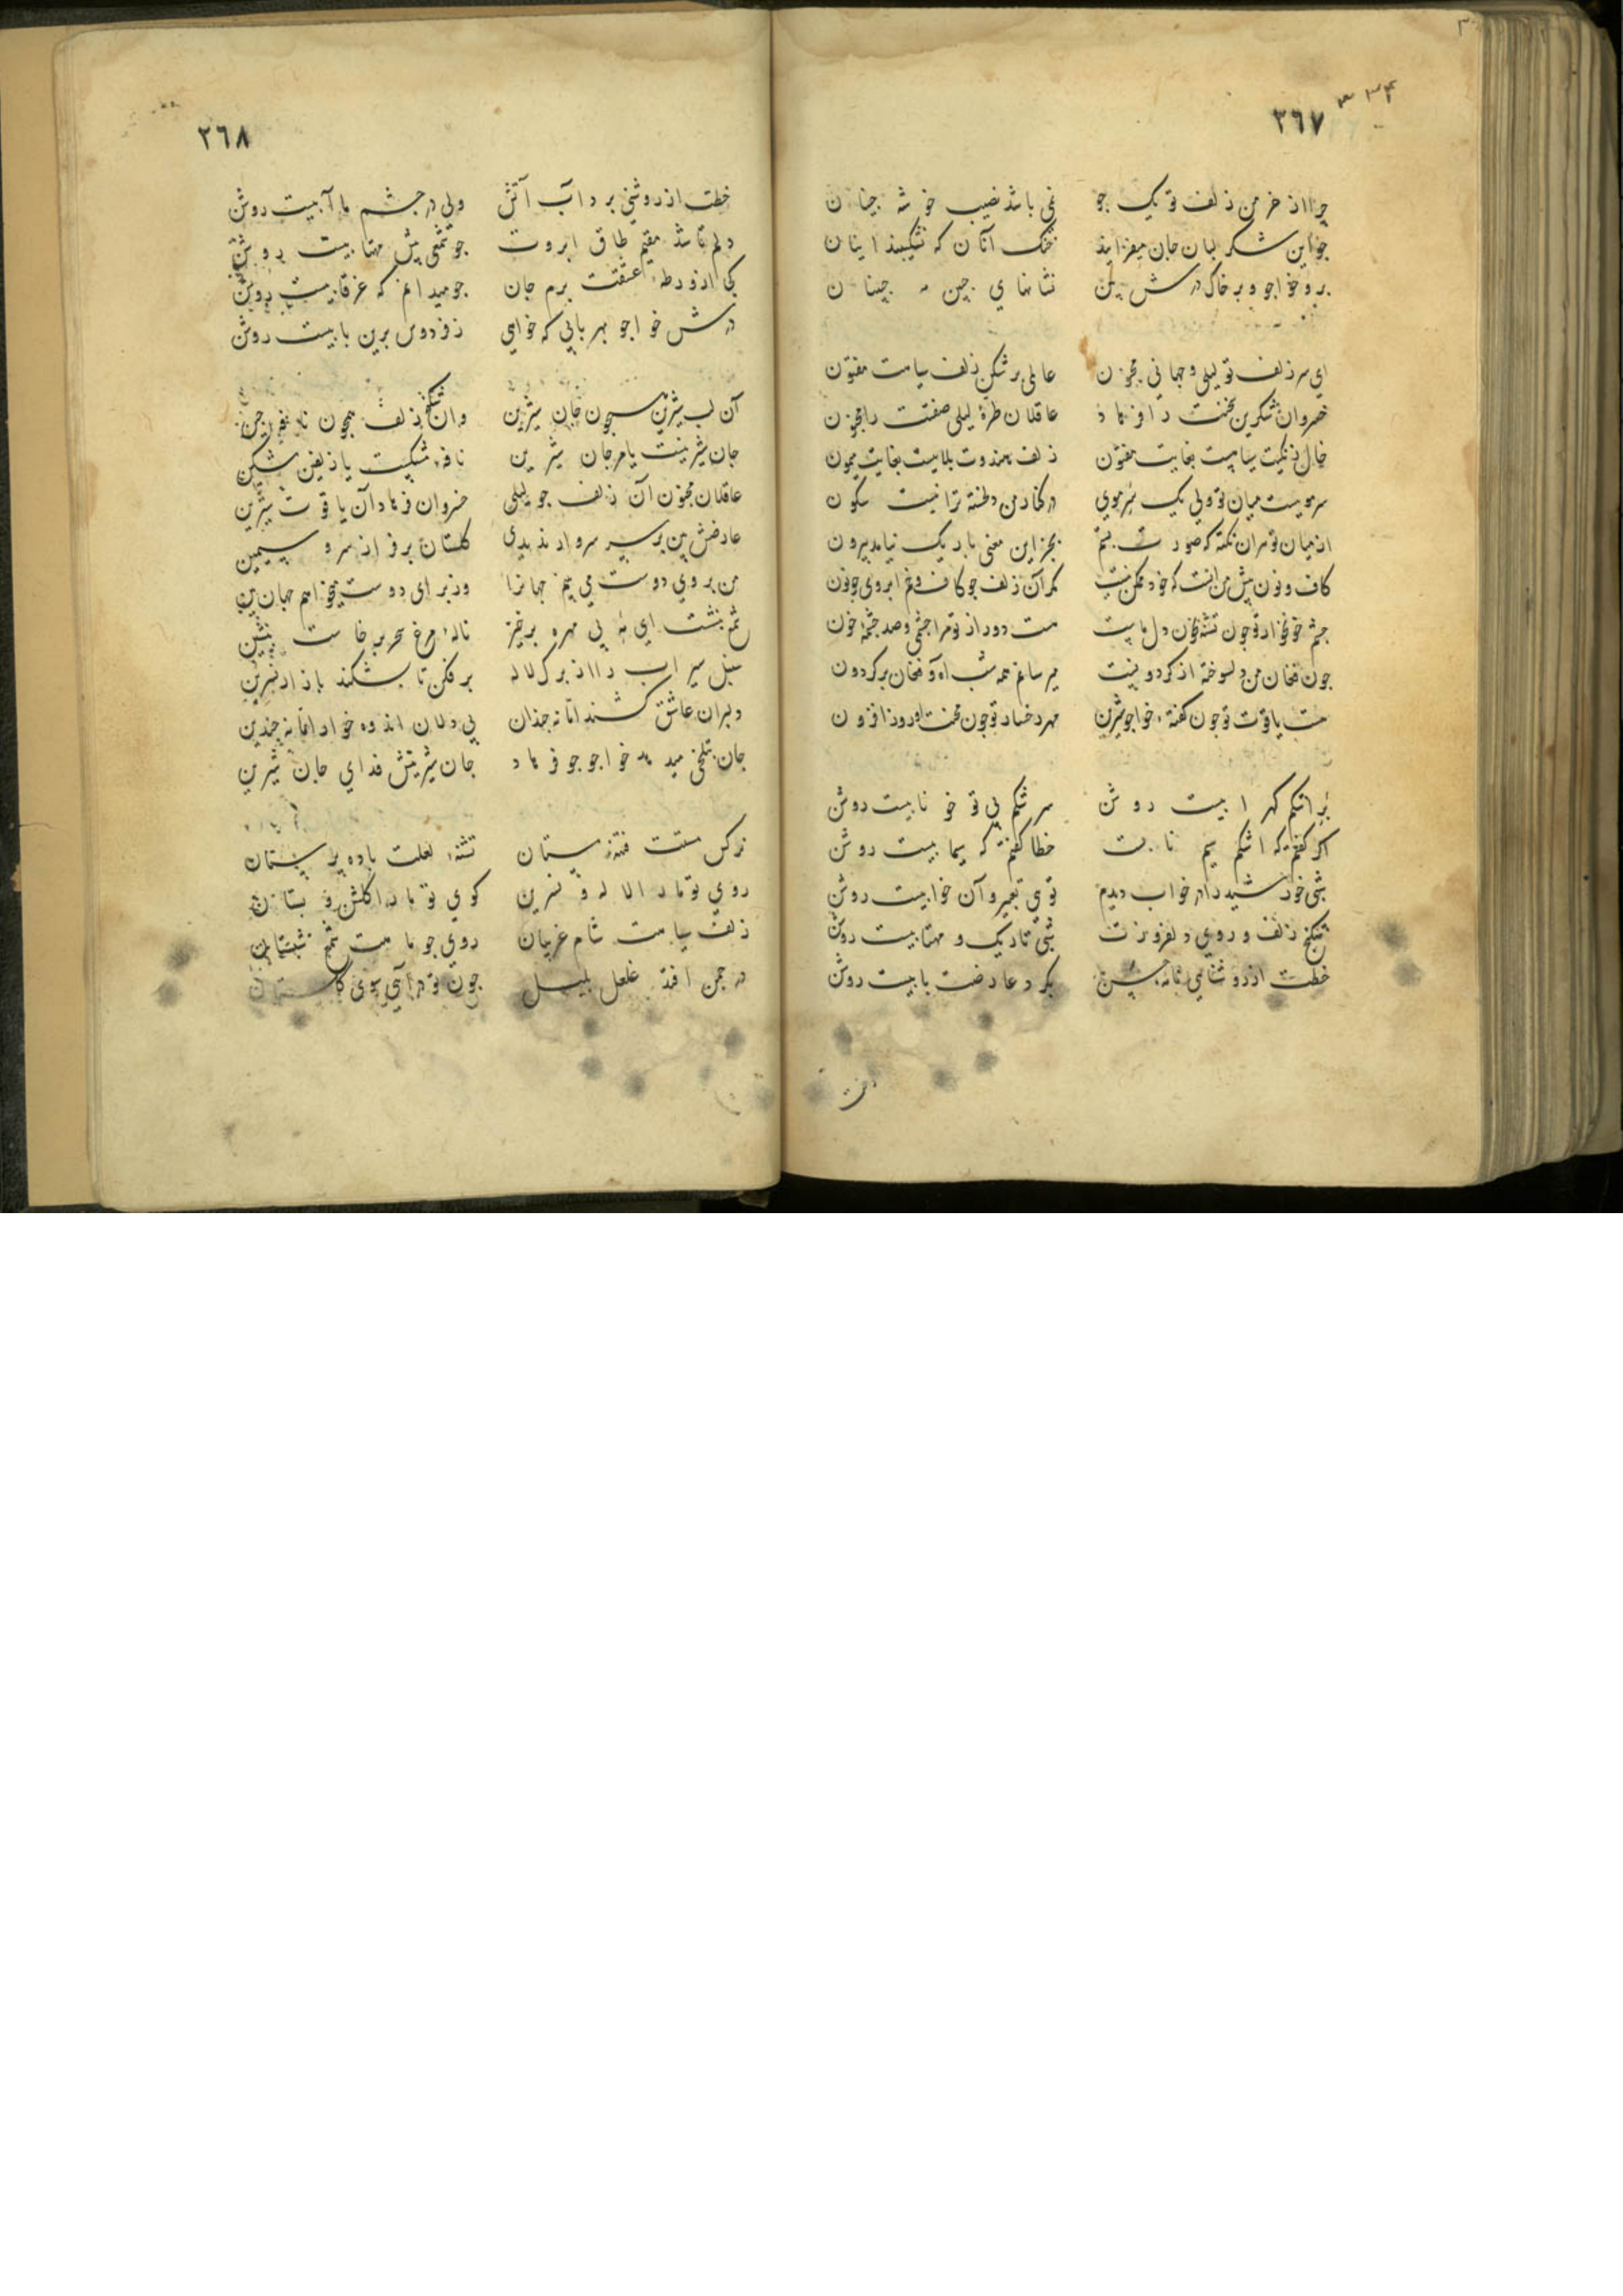 ٣٦٧
چرا از خرمن زلف تو یک جو نمی باشد نصیب خوشه چینان
چو این شکر لبان جان میفزایند خنک آنان که نشکیبند ازینان
برو خواجو و بر خاک درش بین نشانهای جبین مه جبینان
ای سر زلف تو لیلی و جهانی مجنون عالمی بر شکن زلف سیاهت مفتون
خسروان شکرین سخنت را فرهاد عاقلان طرهٔ لیلی صفتت را مجنون
خال زنگیت سیاهیست بغایت مفتون زلف هندوت بلاییست بغایت میمون
سر موییست میان تو ولی یک سر موی در کنار من دلخسته ترا نیست سکون
از میان تو هر آن نکته که صورت بستم بجز این معنی باریک نیامد بیرون
کاف و نون پیش من آنست که خود ممکن نیست مگر آن زلف چو کاف و خم ابروی چو نون
چشم خونخوار تو چون تشنه بخون دل ماست هست دور از تو مرا چشمی و صد چشمه خون
چون فغان من دلسوخته از گردونیست میرسانم همه شب آه و فغان بر گردون
هست یاقوت تو چون گفتهٔ خواجو شیرین مهر رخسار تو چون محنت او روز افزون
برا اشکم گهر ابیست روشن سرشکم بی تو خونابیست روشن
اگر گفتم که اشکم سیم نابست خطا گفتم که سیمابیست روشن
شبی خورشید را در خواب دیدم توی تعبیر و آن خوابیست روشن
شکنج زلف و روی دلفروزت شبی تاریک و مهتابیست روشن
خطت از روشنایی نامهٔ حسن بگرد عارضت بابیست روشن
٢٦٨
خطت از روشنی بر د آب آتش ولی در چشم ما آبیست روشن
دلم تا شد مقیم طاق ابروت چو شمعی پیش مهتابیست روشن
کی از ورطهٔ عشقت برم جان چو میدانم که غرقابیست روشن
درش خواجو بهر بابی که خواهی ز فردوس برین بابیست روشن
آن لب شیرین همچون جان شیرین وان شکنج زلف همچون نافهٔ چین
جان شیرینست یا مرجان شیرین نافهٔ مشکست یا زلفین مشکین
عاقلان مجنون آن زلف چو لیلی خسروان فرهاد آن یاقوت شیرین
عارضش بین بر سر سرو ار ندیدی گلستان بر فراز سرو سیمین
من بروی دوست می بینم جهانرا وز برای دوست میخواهم جهان بین
شمع بنشست ای مه بی مهر و برخیز نالهٔ مرغ سحر برخاست بنشین
سنبل سیراب را از برگ لاله برفکن تا بشکند بازار نسرین
دلبران عاشق کشند اما نه چندان بی دلان انده خورند اما نه چندین
جان بتلخی میدهد خواجو چو فرهاد جان شیرینش فدای جان شیرین
نرگس مستت فتنهٔ مستان تشنهٔ لعلت باده پرستان
روی تو ما را لاله و نسرین کوی تو ما را گلشن و بستان
زلف سیاهت شام غریبان روی چو ماهت شمع شبستان
در چمن افتد غلغل بلبل چون تو درآیی سوی گلستان